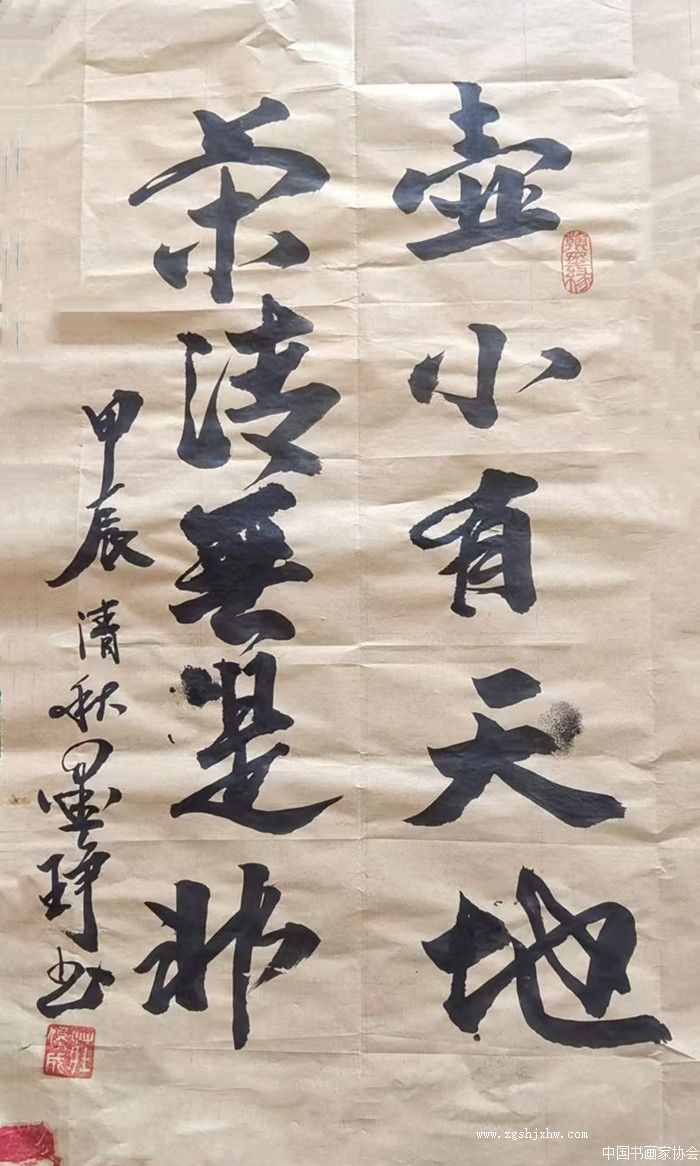 壺小有天地
茶清無是非
甲辰清秋墨琤书
www.zgshjxhw.com
中国书画家协会